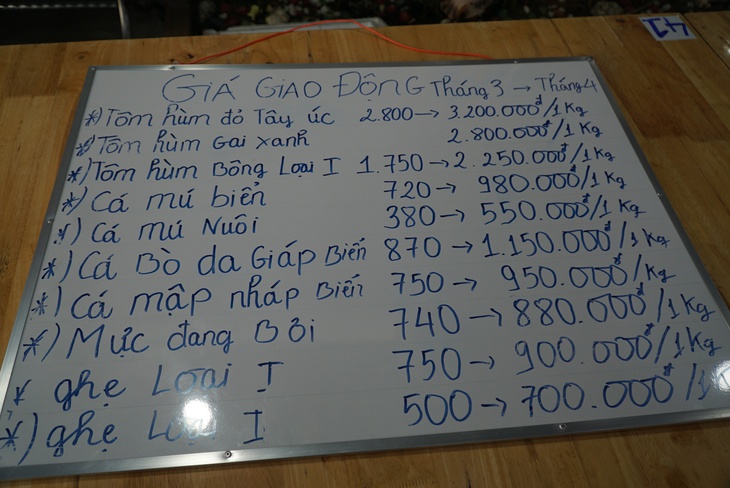 41
GIÁ GIAO ĐỘNG Tháng 3 → Tháng 4
*) Tôm hùm đỏ Tây úc 2.800 → 3.200.000đ/1 Kg
*) Tôm hùm Gai xanh 2.800.000đ/1 Kg
*) Tôm hùm Bông Loại I 1.750 → 2.250.000đ/1 Kg
*) Cá mú biển 720 → 980.000đ/1 Kg
*) Cá mú Nuôi 380 → 550.000đ/1 Kg
*) Cá Bò da Giáp Biển 870 → 1.150.000đ/1 Kg
*) Cá mập nháp Biển 750 → 950.000đ/1 Kg
*) Mực đang Bơi 740 → 880.000đ/1 Kg
* ghẹ Loại I 750 → 900.000đ/1 Kg
*) ghẹ Loại I 500 → 700.000đ/1 K